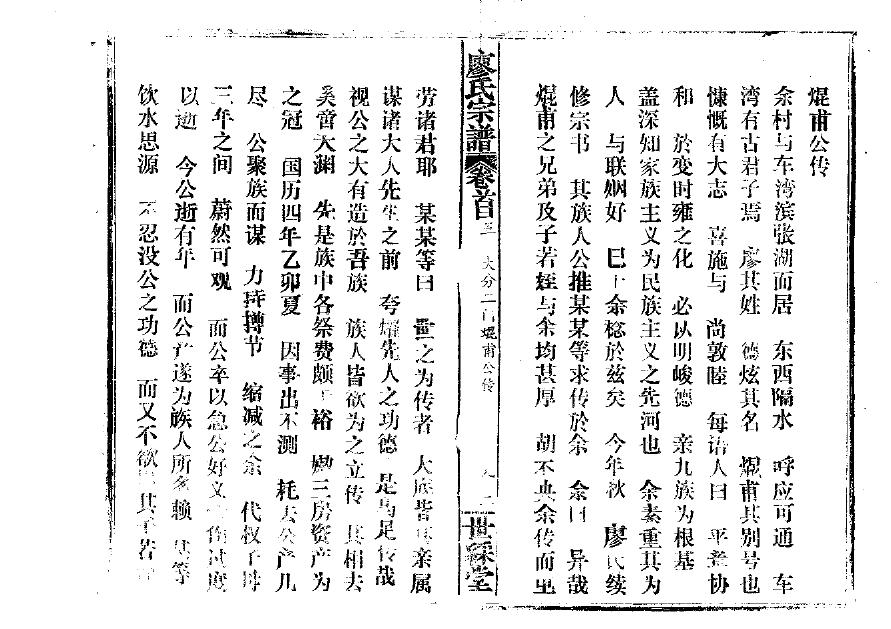 焜甫公传
余村与车湾滨张湖而居 东西隔水 呼应可通 车
湾有古君子焉 廖其姓 德炫其名 焜甫其别号也
慷慨有大志 喜施与 尚敦睦 每语人曰 平章协
和 於变时雍之化 必以明峻德 亲九族为根基
盖深知家族主义为民族主义之先河也 余素重其为
人 与联姻好 已十余稔於兹矣 今年秋 廖氏续
修宗书 其族人公推某某等求传於余 余曰 异哉
焜甫之兄弟及子若姪与余均甚厚 胡不央余传而重
廖氏宗谱 卷首
大分二 焜甫公传
世綵堂
劳诸君耶 某某等曰 世之为传者 大底皆其亲属
谋诸大人先生之前 夸耀先人之功德 是乌足传哉
视公之大有造於吾族 族人皆欲为之立传 其相去
奚啻天渊 先是族中各祭费颇 裕 懒三房资产为
之冠 国历四年乙卯夏 因事出不测 耗去公产几
尽 公聚族而谋 力持撙节 缩减之余 代权子母
三年之间 蔚然可观 而公卒以急公好义 伤过度
以逝 今公逝有年 而公产遂为族人所多赖 某等
饮水思源 不忍没公之功德 而又不欲 其子若